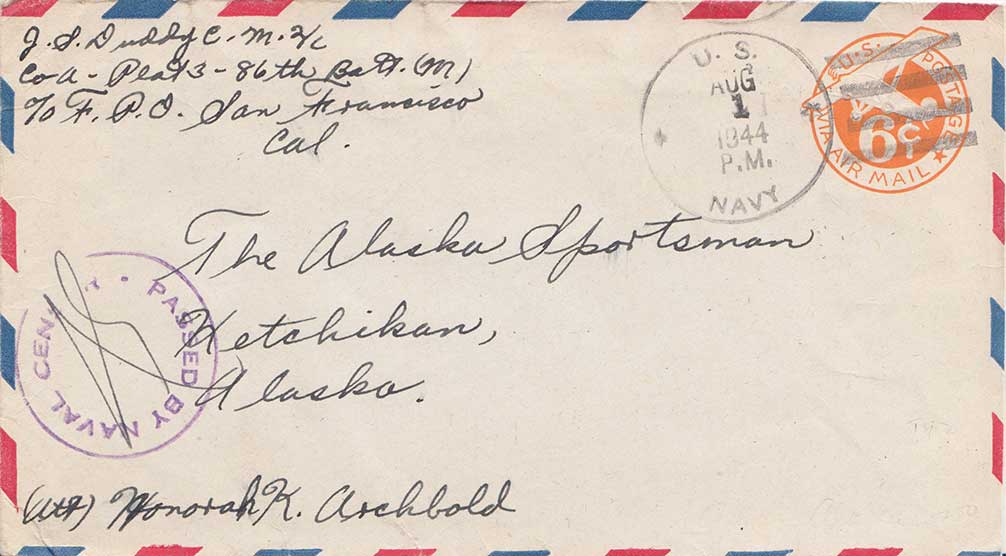 J. S. Duddy C. M. 2/c
Co A - Plat 3 - 86th Batt. (M)
℅ F. P. O. San Francisco
Cal.
U. S.
AUG
1
1944
P.M.
NAVY
U.S. POSTAGE
6¢
VIA AIR MAIL
The Alaska Sportsman
Ketchikan,
Alaska.
PASSED BY NAVAL CENSOR
(Att) Honorah K. Archbold